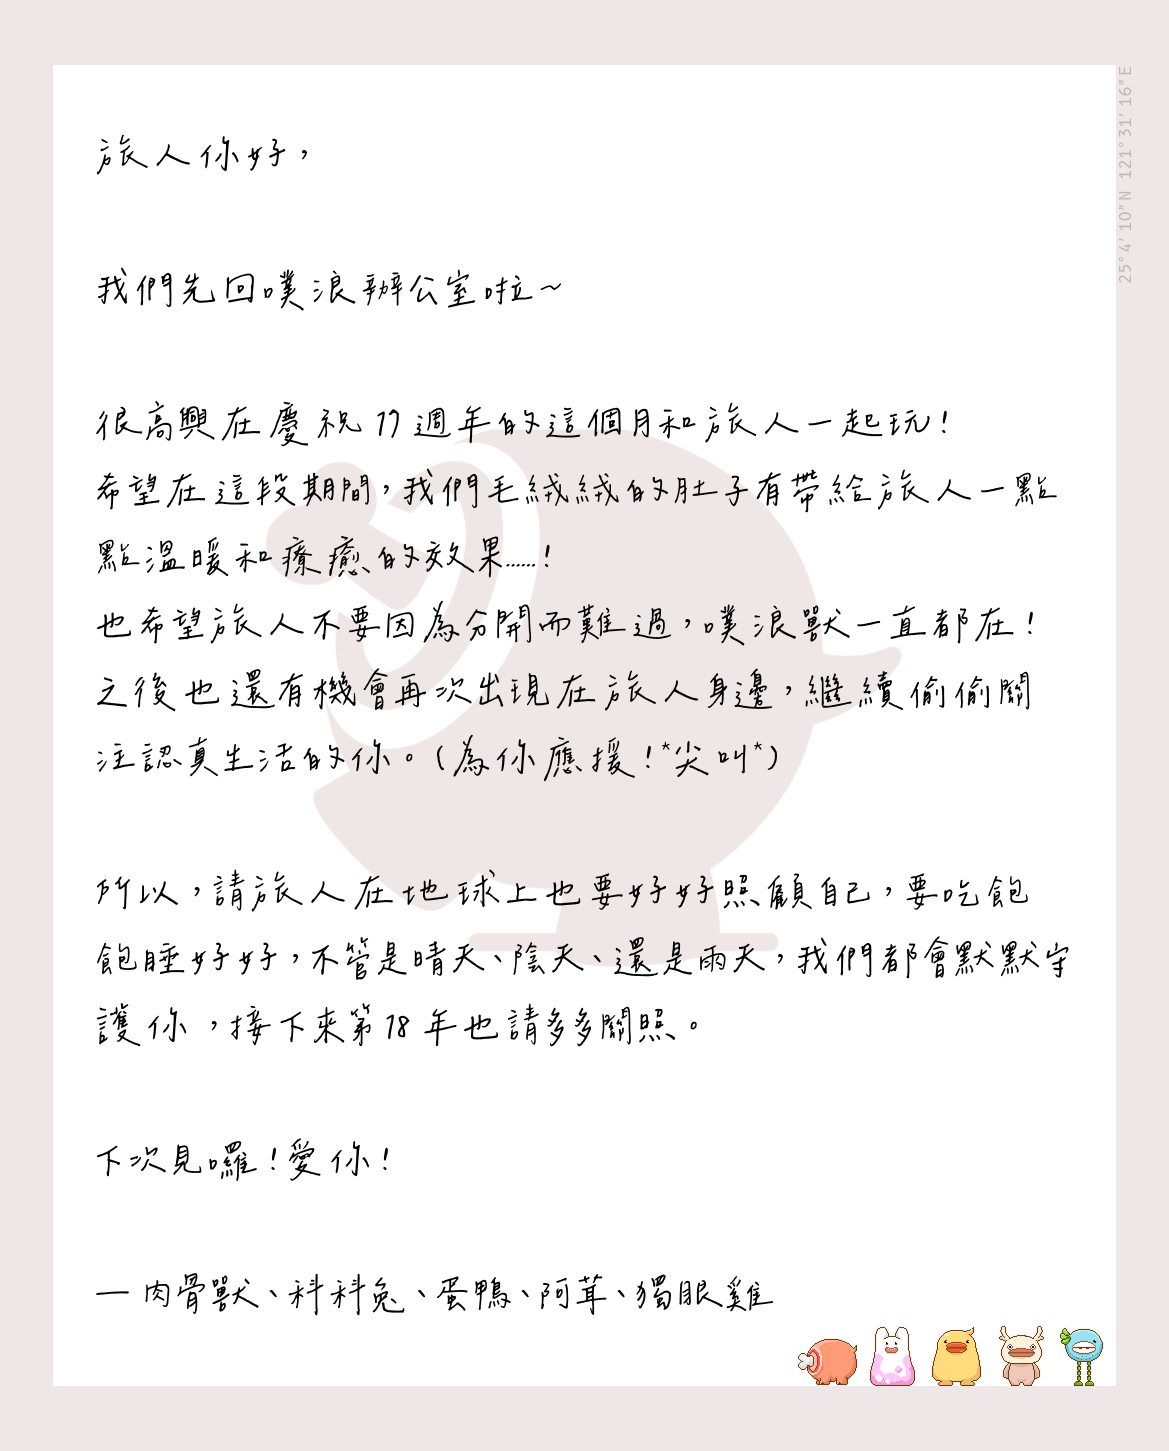 旅人你好，
我們先回噗浪辦公室啦~
很高興在慶祝17週年的這個月和旅人一起玩！
希望在這段期間，我們毛絨絨的肚子有帶給旅人一點
點溫暖和療癒的效果……！
也希望旅人不要因為分開而難過，噗浪獸一直都在！
之後也還有機會再次出現在旅人身邊，繼續偷偷關
注認真生活的你。(為你應援！*尖叫*)
所以，請旅人在地球上也要好好照顧自己，要吃飽
飽睡好好，不管是晴天、陰天、還是雨天，我們都會默默守
護你，接下來第18年也請多多關照。
下次見囉！愛你！
— 肉骨獸、科科兔、蛋鴨、阿茸、獨眼雞
25°4'10"N 121°31'16"E